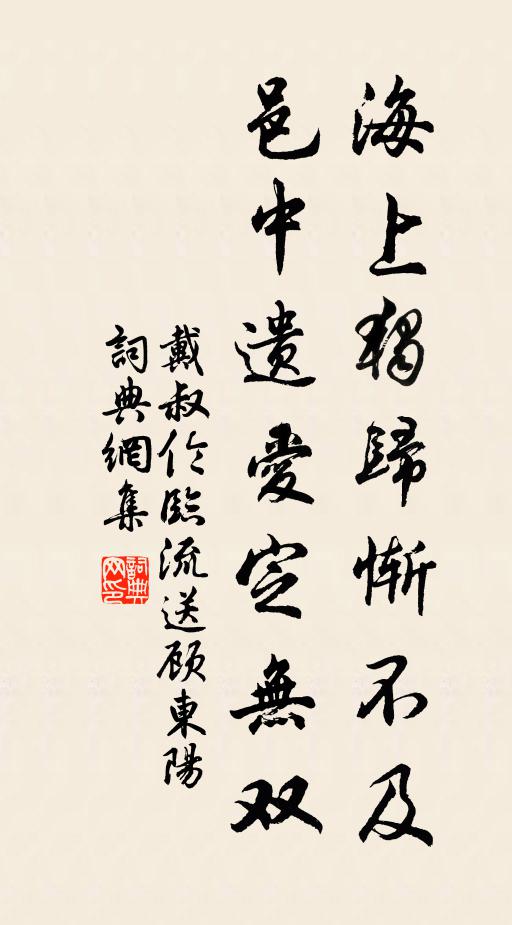 海上獨歸慚不及
邑中遺愛定無双
戴叔伦臨流送顾東陽
詞典網集
詞典网印